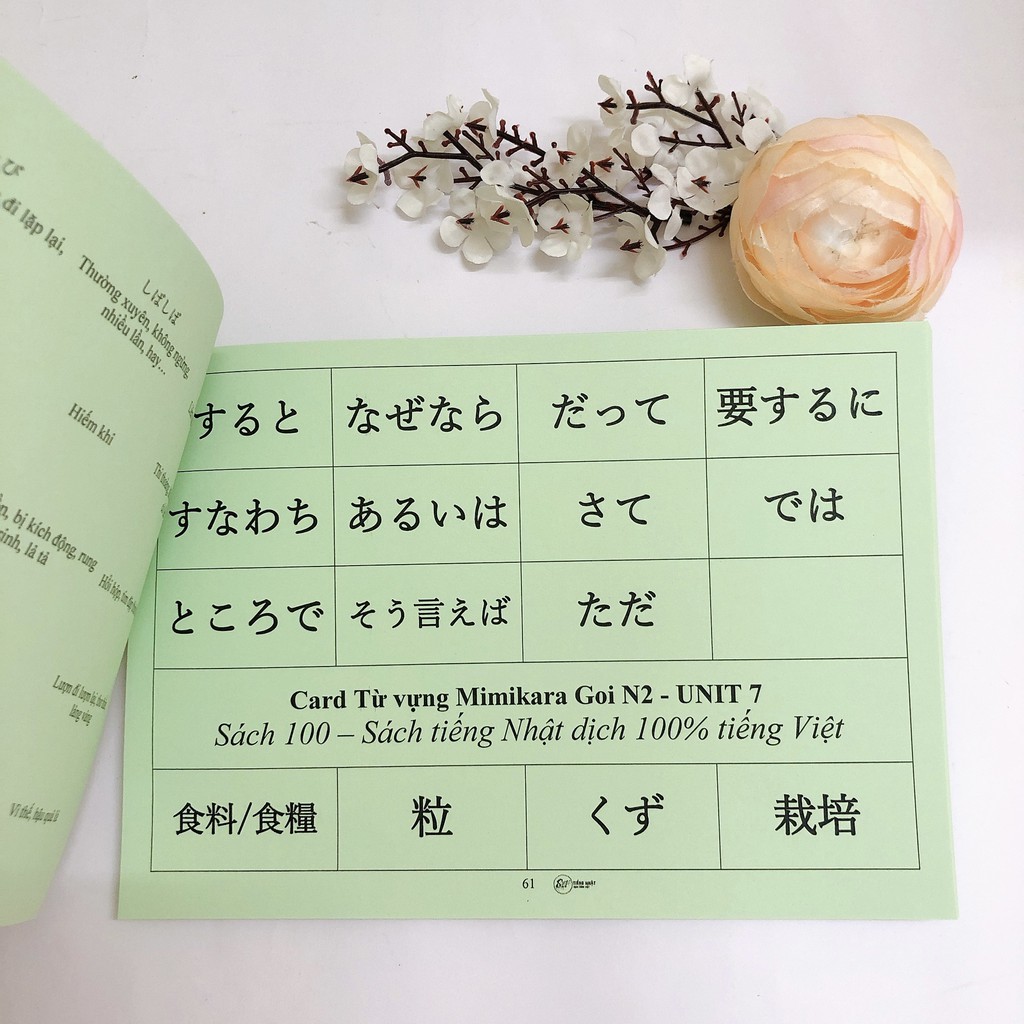 び
đi lặp lại,
しばしば
Thường xuyên, không ngừng,
nhiều lần, hay...
Hiếm khi
bị kích động, rung
rinh, lả tả
Vì thế, hậu quả là
すると なぜなら だって 要するに
すなわち あるいは さて では
ところで そう言えば ただ
Card Từ vựng Mimikara Goi N2 - UNIT 7
Sách 100 – Sách tiếng Nhật dịch 100% tiếng Việt
食料/食糧 粒 くず 栽培
61